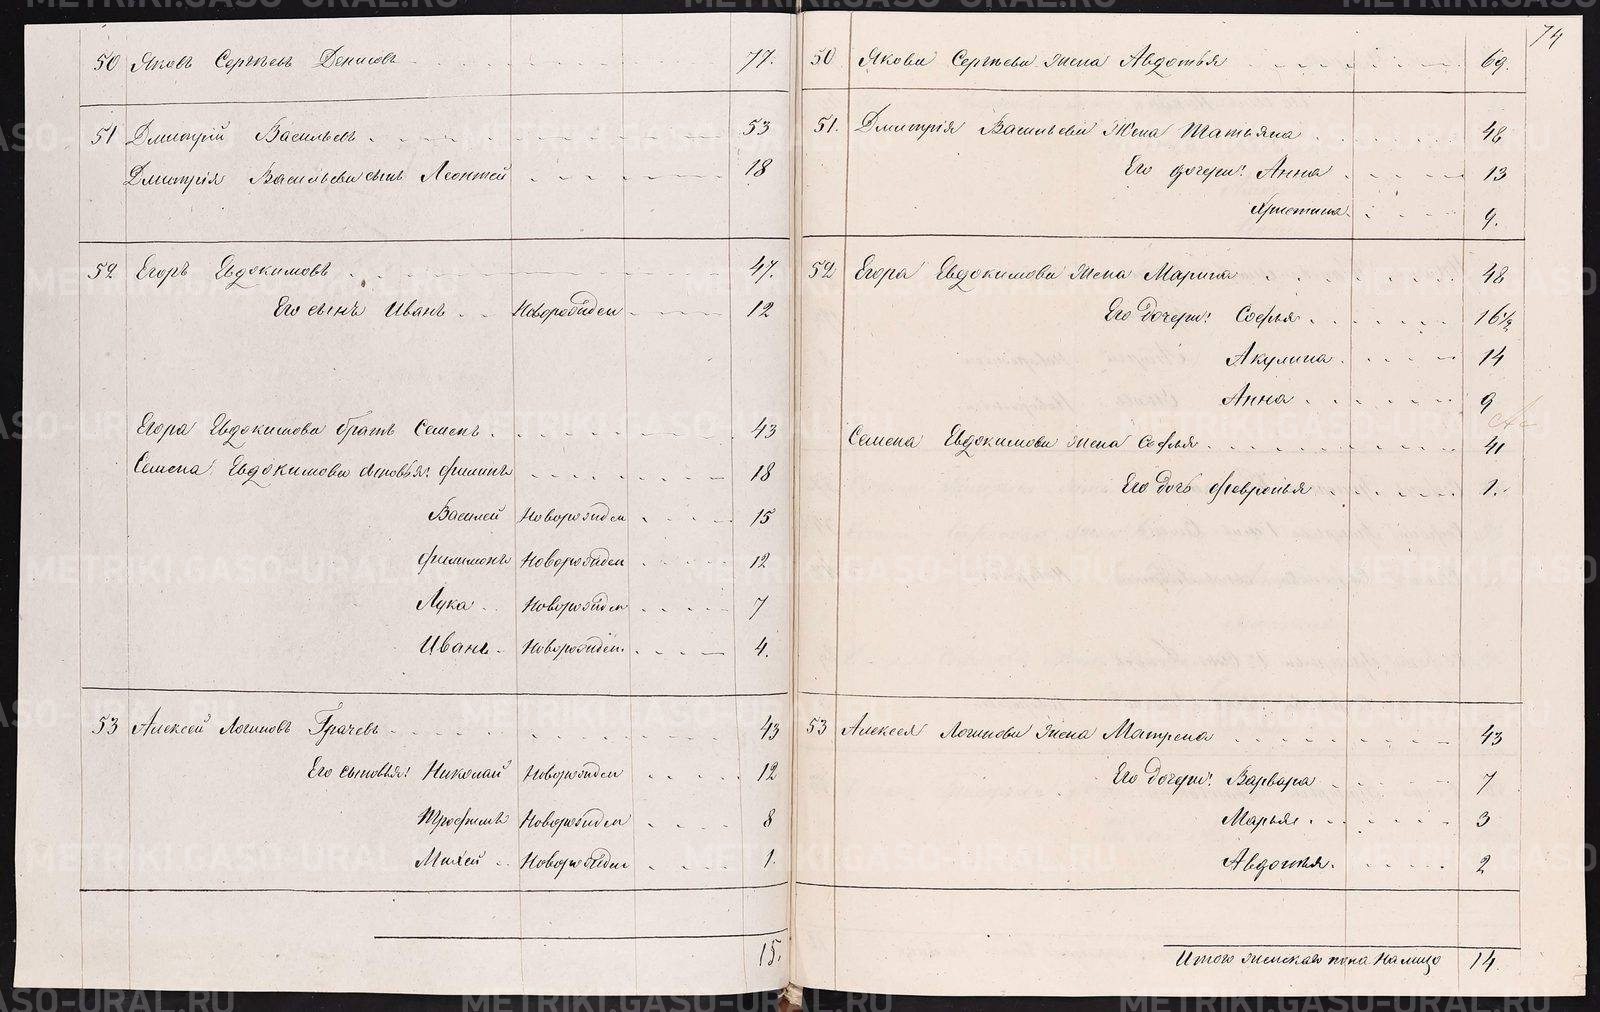 74
50 Яковъ Сергѣевъ Денисовъ 77.
51 Дмитрій Васильевъ 53
Дмитрія Васильева сынъ Леонтей 18
52 Егоръ Евдокимовъ 47.
Его сынъ Иванъ Новорожден 12
Егора Евдокимова братъ Семенъ 43
Семена Евдокимова сыновья: Филипъ 18
Василей Новорожден 15
Филимонъ Новорожден 12
Лука Новорожден 7
Иванъ Новорожден. 4.
53 Алексей Логиновъ Грачевъ 43
Его сыновья: Николай Новорожден 12
Трофимъ Новорожден 8
Михей Новорожден 1.
15.
50 Якова Сергѣева жена Авдотья 69.
51. Дмитрія Васильева жена Татьяна 48
Его дочери: Анна 13
Христина 9.
52 Егора Евдокимова жена Марина 48
Его дочери: Софья 16½
Акулина 14
Анна 9
Семена Евдокимова жена Софья 41
Его дочь Февронья 1.
53 Алексея Логинова жена Матрена 43
Его дочери: Варвара 7
Марья 3
Авдотья. 2
Итого женскаго пола налицо 14.
METRIKI.GASO-URAL.RU